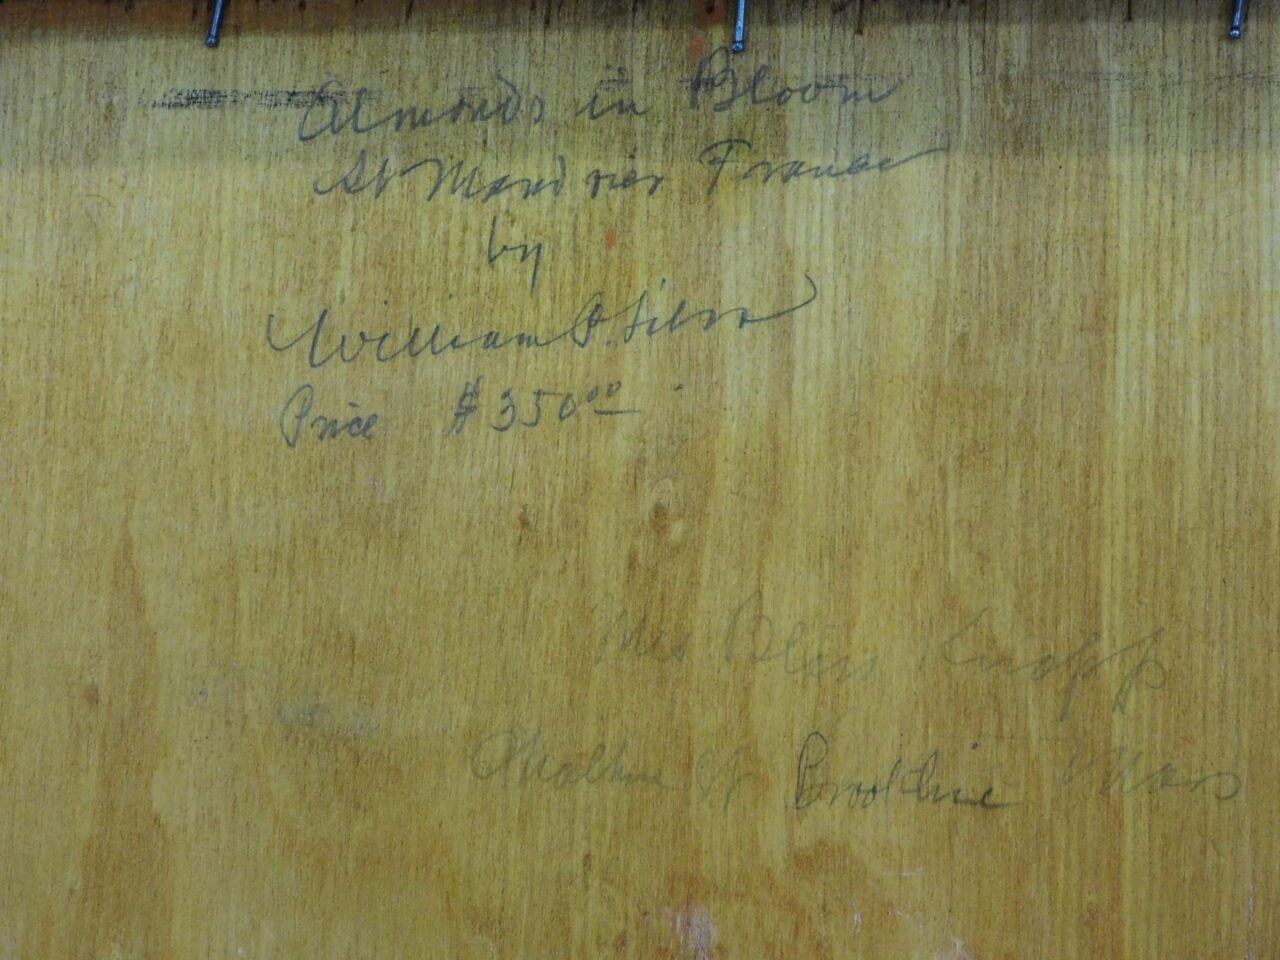 Almonds in Bloom
St Mandrier France
by
William P. Silva
Price $350.00
Mrs Bliss Knapp
St Brookline Mass